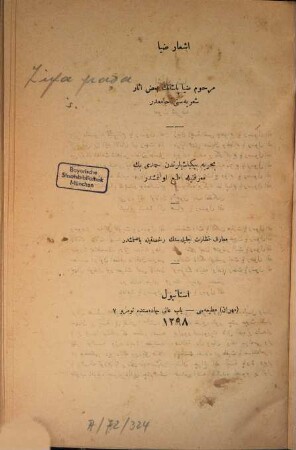 اشعار ضیا
Zija pascha
s.
مرحوم ضیا پاشانك بعض آثار
شعریه‌سی جامعدر
بحریه بیكباشیلرندن حمدی بك
معرفتیله طبع اولنمشدر
Bayerische
Staatsbibliothek
München
معارف نظارت جلیله‌سنك رخصتیله باصلمشدر
استانبول
(مهران) مطبعه‌سی — باب عالی جاده‌سنده نومرو ۷
۱۲۹۸
A/72/324